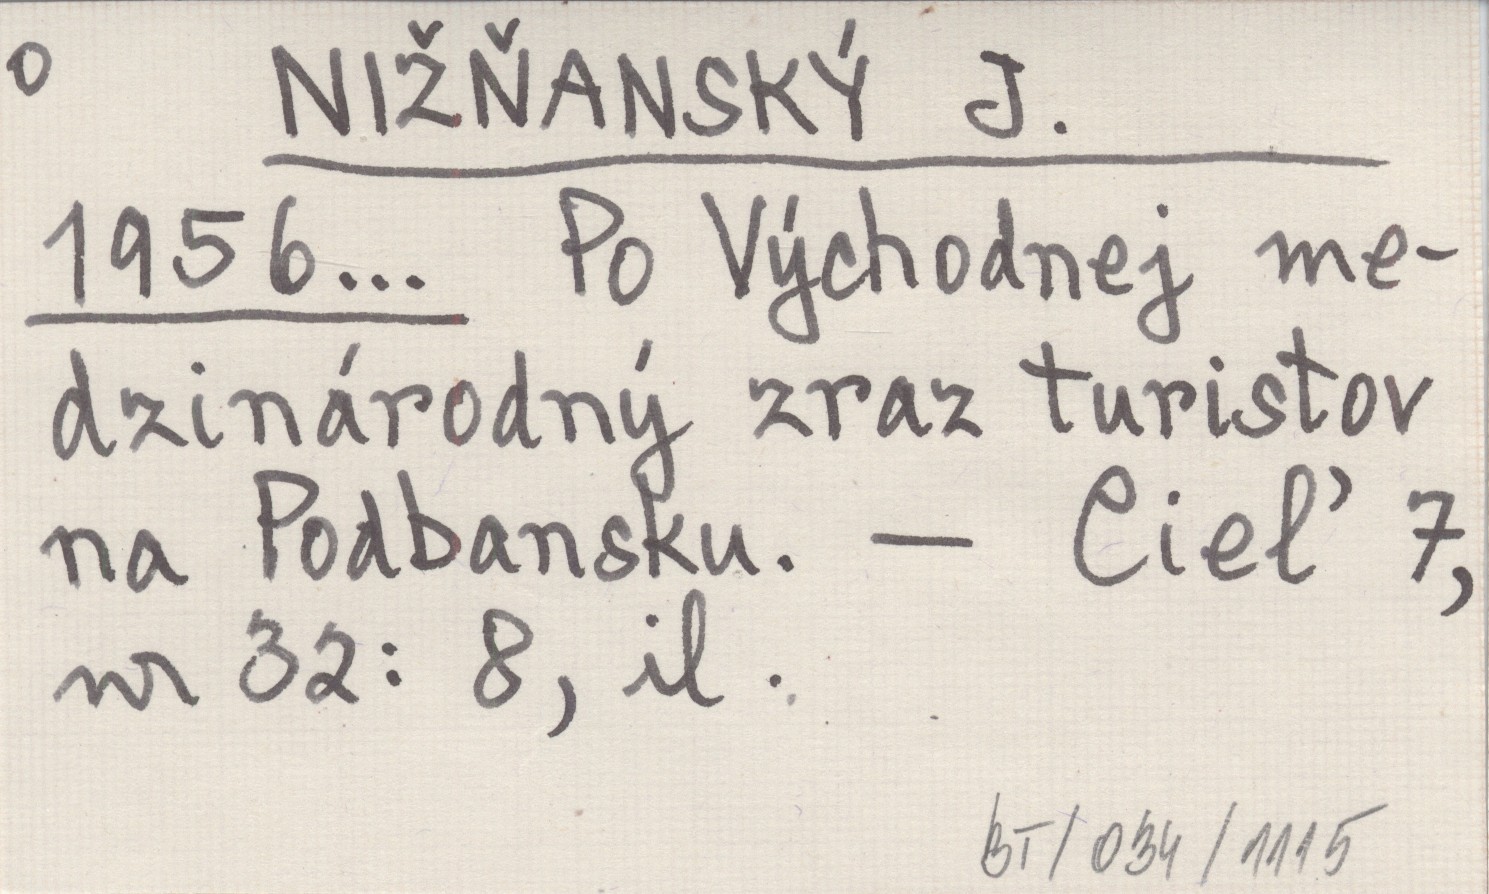 o NIŽŇANSKÝ J.
1956... Po Východnej me-
dzinárodný zraz turistov
na Podbansku. — Cieľ 7,
nr 32: 8, il.
BT/034/1115